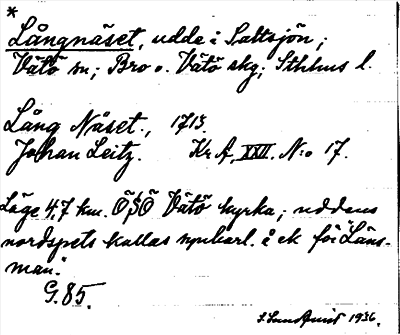 *
Långnäset, udde i Saltsjön;
Vätö sn; Bro o. Vätö skg; Sthlms l.
Lång Näset., 1713.
Johan Leitz. Kr A, XXII. N:o 17.
Läge 4,7 km. ÖSÖ Vätö kyrka; uddens
nordspets kallas å ek för "Läns-
man."
G. 85.
S. Sundquist 1936.